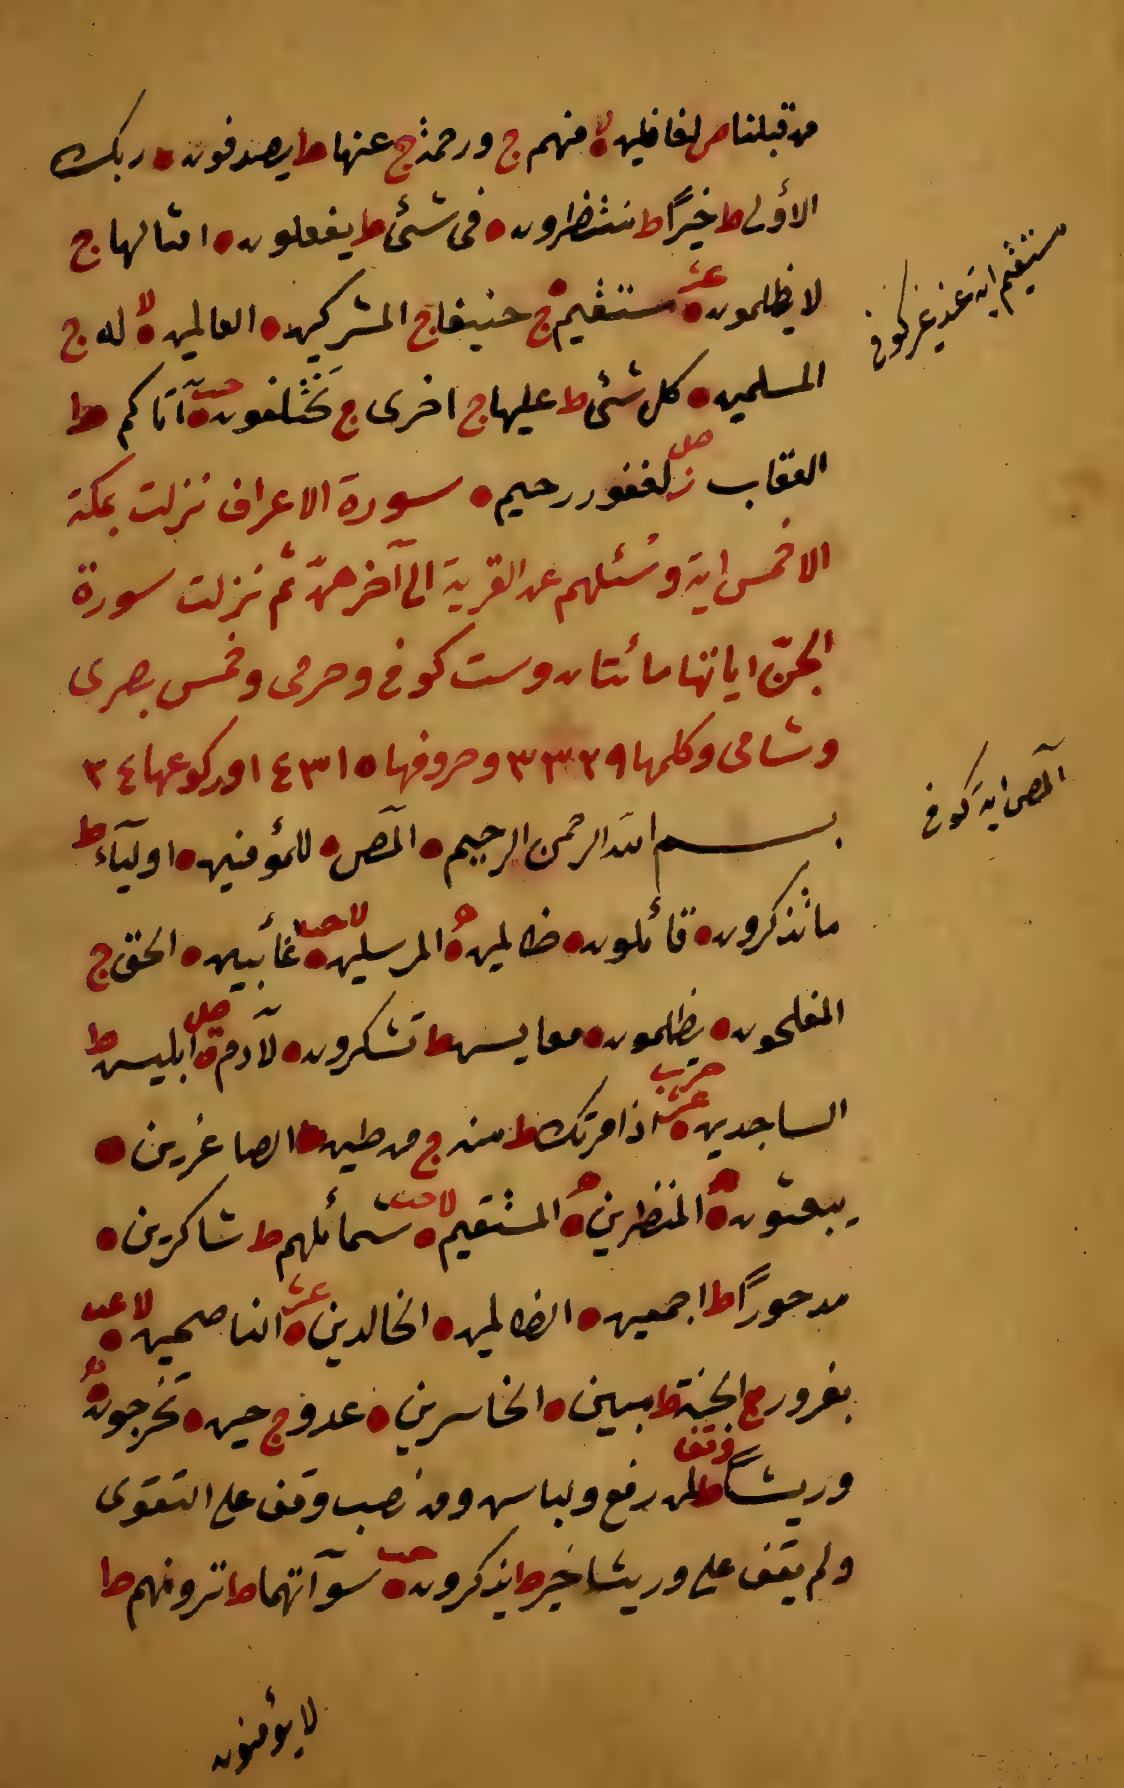 من قبلنا ص لغافلين ۵ لا منهم ج ورحمة ج عنها ط يصدفون ۵ ربك
الأولى ط خيرًا ط منتظرون ۵ في شئ ط يفعلون ۵ امثالها ج
لا يظلمون ۵ عشر مستقيم ۵ ج حنيفا ج المشركين ۵ العالمين ۵ لا له ج
المسلمين ۵ كل شئ ط عليها ج اخرى ج تختلفون ۵ حب آتاكم ط
العقاب ز صل لغفور رحيم ۵ سورة الاعراف نزلت بمكة
الا خمس اية وسئلهم عن القرية الى آخرهنّ ثم نزلت سورة
الجنّ اياتها مائتان وست كوفى وحرمى وخمس بصرى
وشامى وكلمها ٣٣٢٩ وحروفها ١٤٣١٥ وركوعها ٢٤
بسم الله الرحمن الرحيم ۵ الٓمٓصٓ ۵ للمؤمنين ۵ اوليآء ط
ما تذكرون ۵ قائلون ۵ ظالمين ۵ المرسلين ۵ لا حب غائبين ۵ الحق ج
المفلحون ۵ يظلمون ۵ معايش ط تشكرون ۵ لآدم ق صل ابليس ط
الساجدين ۵ عشر حزب اذ امرتك ط منه ج من طين ۵ الصاغرين ۵
يبعثون ۵ المنظرين ۵ المستقيم ۵ لا حب شمائلهم ط شاكرين ۵
مدحورًا ط اجمعين ۵ الظالمين ۵ الخالدين ۵ عشر الناصحين ۵ لا عب
بغرور ج الجنة ط مبين ۵ الخاسرين ۵ عدو ج حين ۵ تخرجون ۵
وريشًا ط وقف لمن رفع ولباس ومن نصب وقف على التقوى
ولم يقف على وريشا خير ط يذكرون ۵ حب سوآتهما ط ترونهم ط
لا يؤمنون
مستقيم اية عند غير كوفى
الٓمٓصٓ اية كوفى